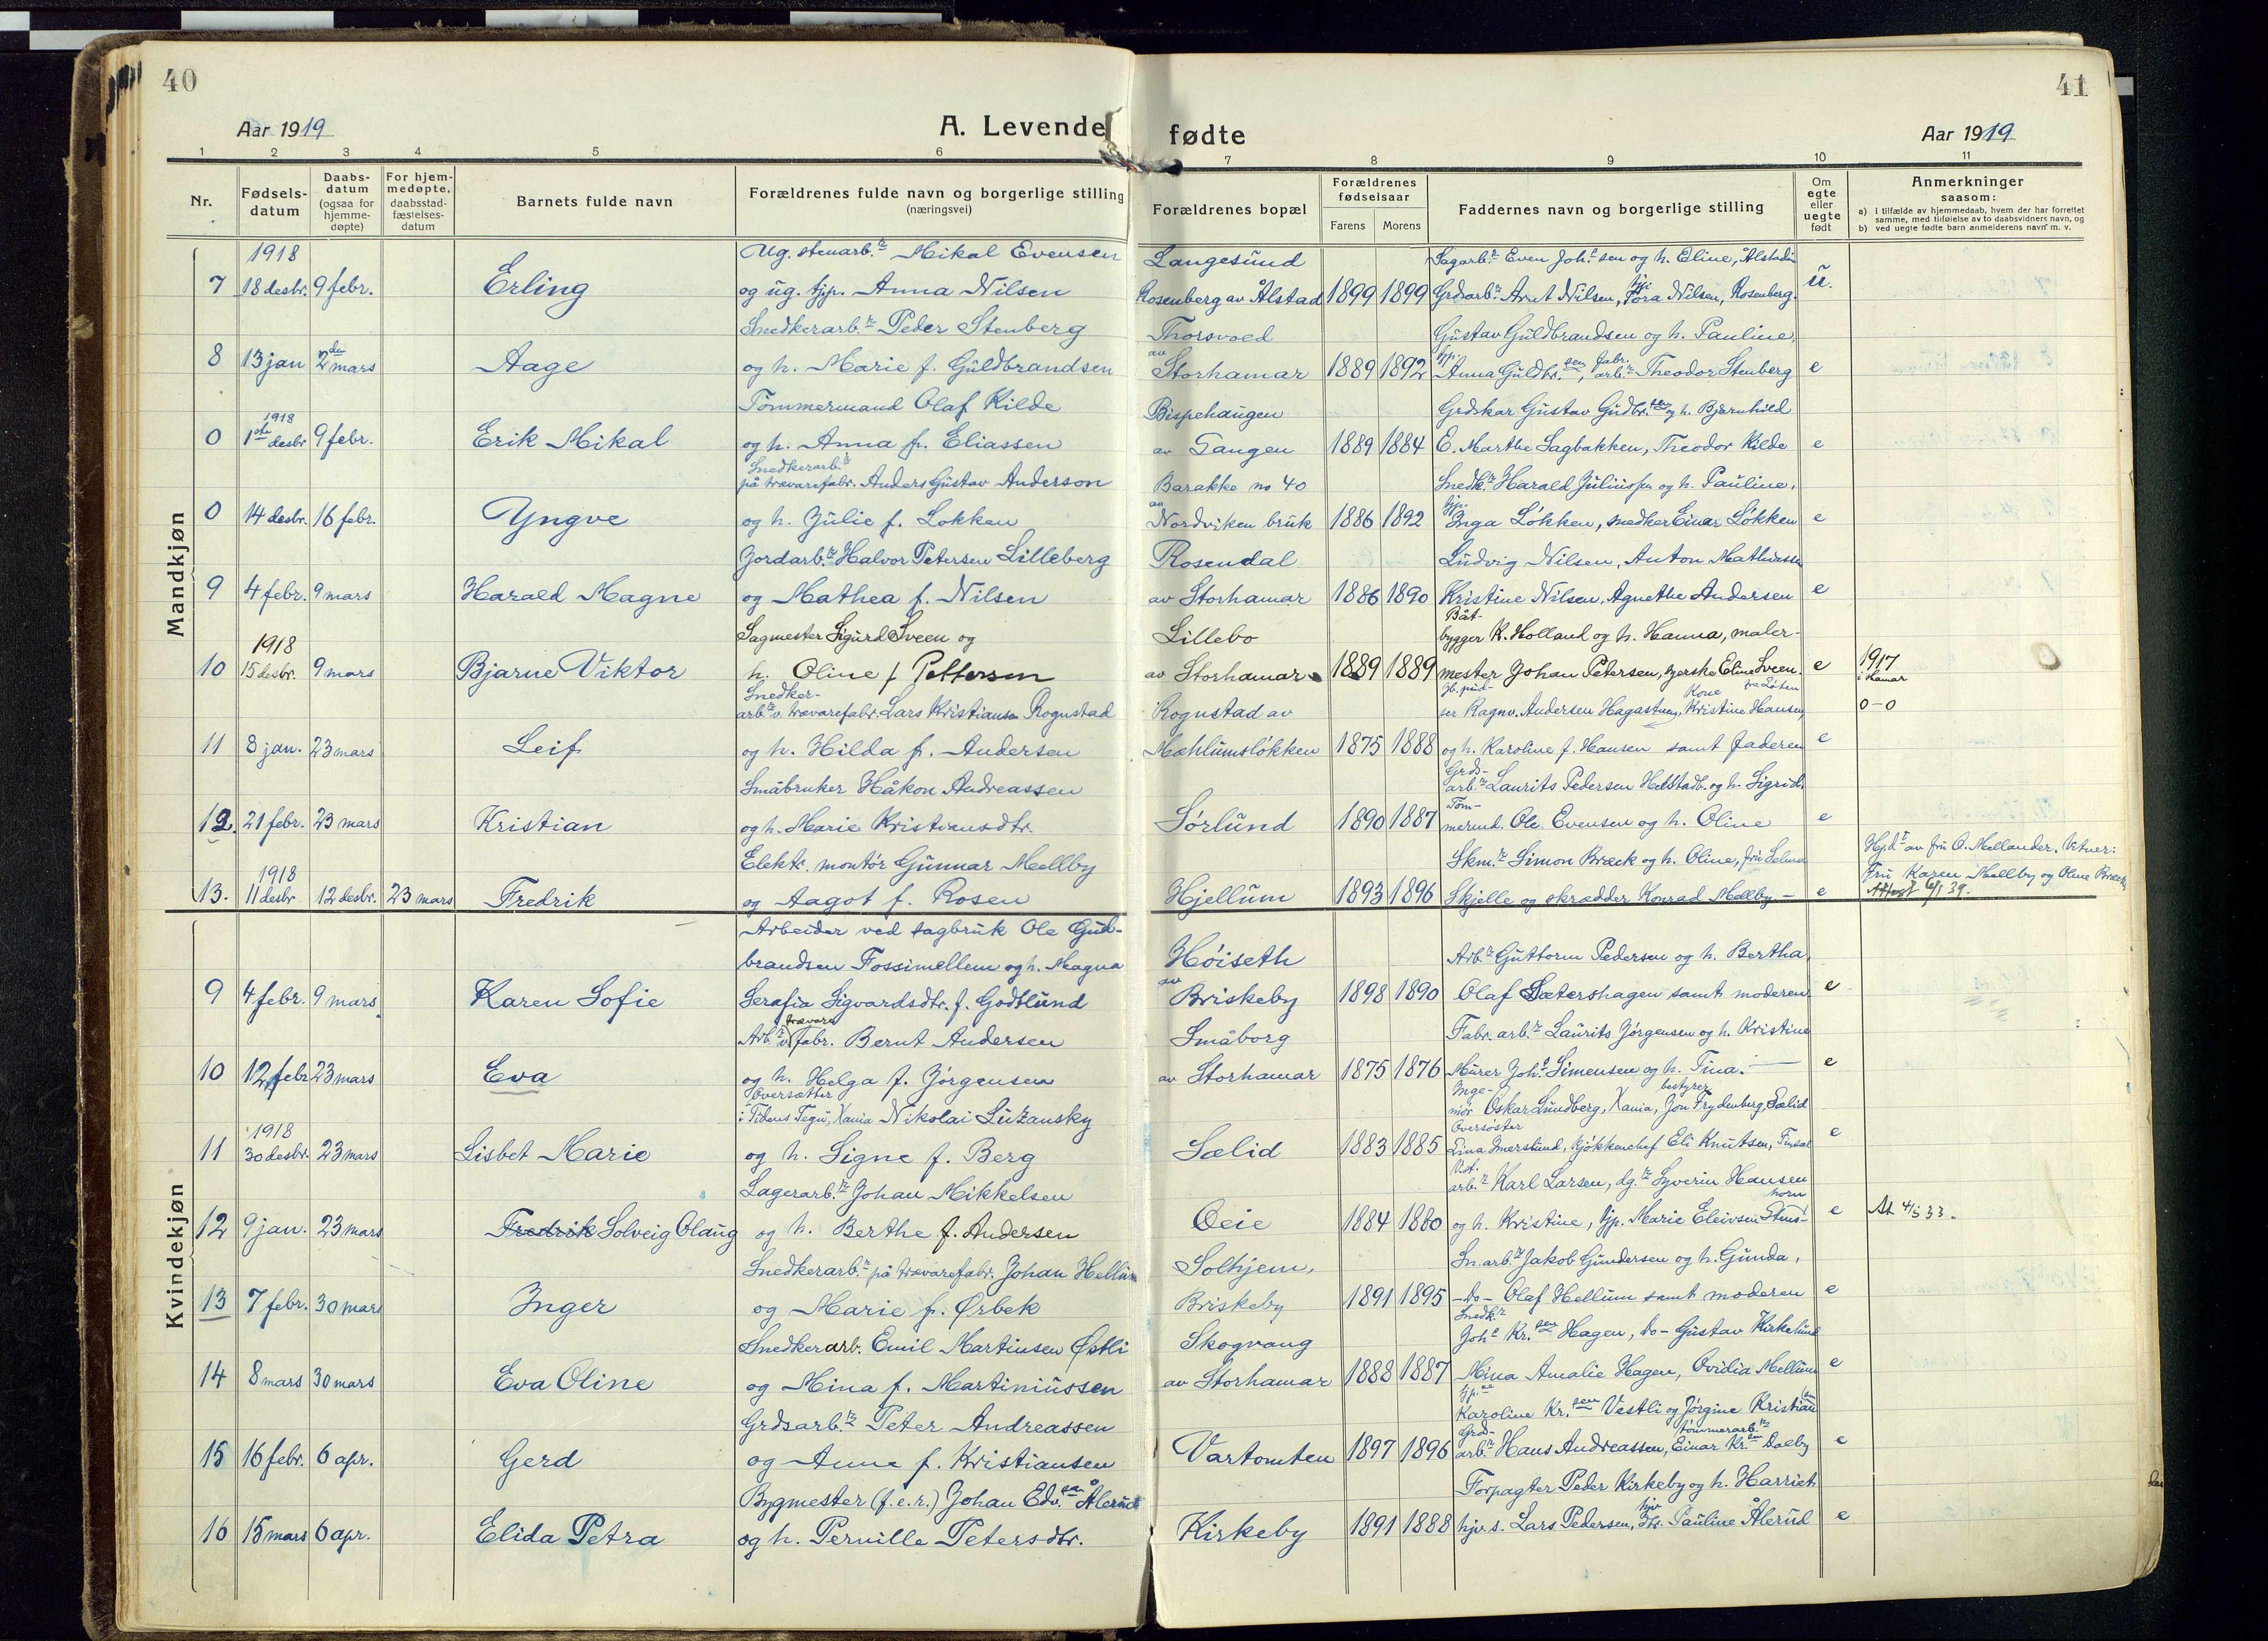 40
41
Aar 1919
A. Levende
fødte
Aar 1919
1 2 3 4 5 6 7 8 9 10 11
Nr.
Fødsels-
datum
Daabs-
datum
(ogsaa for
hjemme-
døpte)
For hjem-
medøpte,
daabsstad-
fæstelses-
datum
Barnets fulde navn
Forældrenes fulde navn og borgerlige stilling
(næringsvei)
Forældrenes bopæl
Forældrenes
fødselsaar
Farens Morens
Faddernes navn og borgerlige stilling
Om
egte
eller
uegte
født
Anmerkninger
saasom:
a) I tilfælde av hjemmedaab, hvem der har forrettet
samme, med tilføielse av to daabsvidners navn, og
b) ved uegte fødte barn anmelderens navn m. v.
Mandkjøn
1918 Ug. stenarb.r Mikal Evensen Langesund Sagarb.r Even Joh.sen og h. Eline, Ålstadei
7 18 desbr. 9 febr. Erling og ug. tjp. Anna Nilsen Rosenberg av Ålstad 1899 1899 Grdarb.r Arnt Nilsen, tjp. Tora Nilsen, Rosenberg. u.
Snedkerarb.r Peder Stenberg Thorsvold Gustav Guldbrandsen og h. Pauline,
8 13 jan 2den mars Aage og h. Marie f. Guldbrandsen av Storhamar 1889 1892 tjp. Anna Guldbr.sen, fabr. arb.r Theodor Stenberg e
1918 Tömmermand Olaf Kilde Bispehaugen Grdskar Gustav Gudbr.sen og h. Bjørnhild
0 1ste desbr 9 febr. Erik Mikal og h. Anna f. Eliassen av Tangen 1889 1884 E. Marthe Sagbakken, Theodor Kilde e
Snedkerarb.r
på trævarefabr. Anders Gustav Anderson Barakke no 40 Snedk.r Harald Juliussen og h. Pauline,
0 14 desbr. 16 febr. Yngve og h. Julie f. Lokken av Nordviken bruk 1886 1892 tjp. Inga Lökken, snedker Einar Lökken e
Jordarb.r Halvor Petersen Lilleberg Rosendal Ludvig Nilsen, Anton Mathiassen
9 4 febr. 9 mars Harald Magne og Mathea f. Nilsen av Storhamar 1886 1890 Kristine Nilsen, Agnethe Andersen e
1918 Sagmester Sigurd Sveen og Lillebo Båt-
bygger K. Holland og h. Hanna, maler-
10 15 desbr. 9 mars Bjarne Viktor h. Oline f Pettersen av Storhamar 1889 1889 mester Johan Petersen, syerske Eline Sveen. e 1917 i Hamar
Snedker-
arb.r v. trævarefabr. Lars Kristiansen Rognstad Rognstad av ser Ragnv. Andersen Hagastuen, Kone Kristine Hansen fra Löten 0-0
11 8 jan. 23 mars Leif og h. Hilda f. Andersen Mæhlumslökken 1875 1888 og h. Karoline f. Hansen samt faderen e
Småbruker Håkon Andreassen Grds-
arb.r Laurits Pedersen Helstadb. og h. Sigrid.
12. 21 febr. 23 mars Kristian og h. Marie Kristiansdtr. Sörlund 1890 1887 Töm-
mermd. Ole Evensen og h. Oline e
1918 Elektr. montör Gunnar Mellby Skm.r Simon Bræck og h. Oline, fru Selma Hj.dt av fru O. Mellander. Vitner:
13. 11 desbr 12 desbr. 23 mars Fredrik og Aagot f. Rosen Hjellum 1893 1896 Skjelle og skrædder Konrad Mellby - e Fru Karen Mellby og Oline Bræck
Attest 6/1 39.
Kvindekjøn
Arbeider ved sagbruk Ole Gud-
brandsen Fossimellem og h. Magna Höiseth Arb.r Guttorm Pedersen og h. Bertha.
9 4 febr. 9 mars Karen Sofie Serafia Sigvardsdtr. f. Godtlund av Briskeby 1898 1890 Olaf Sætershagen samt moderen e
Arb.r v. trævarefabr. Bernt Andersen Småborg Fabr. arb.r Laurits Jörgensen og h. Kristine
10 12 febr 23 mars Eva og h. Helga f. Jörgensen av Storhamar 1875 1876 Murer Joh.s Simensen og h. Tina. e
Oversætter
1918 i Tidens Tegn, Xania Nikolai Luzansky Inge-
niör Oskar Lundberg, Xania, bestyrer Jon Frydenberg, Sælid
11 30 desbr. 23 mars Lisbet Marie og h. Signe f. Berg Sælid 1883 1885 Oversöster
Lina Imerslund, Kjökkenchef Eli Knutsen, Finsal e
Lagerarb.r Johan Mikkelsen arb.r Karl Larsen, dg.r Syverin Hansen
12 9 jan. 23 mars Fredrik Solveig Olaug og h. Berthe f. Andersen Oeie 1884 1880 og h. Kristine, tjp. Marie Eleivsen e At 4/5 33.
Snedkerarb.r på trævarefabr. Johan Hellum Solhjem, Sn.arb.r Jakob Gundersen og h. Gunda,
13 7 febr. 30 mars Inger og Marie f. Ørbek Briskeby 1891 1895 -Do- Olaf Hellum samt moderen e
Snedkerarb. Emil Martinsen Østli Skogvang Snedk.r
Joh.s Kr.sen Hagen, Do- Gustav Kirkelund
14 8 mars 30 mars Eva Oline og Mina f. Martiniussen av Storhamar 1888 1887 Mina Amalie Hagen, Ovidia Mellum e
Grdsarb.r Peter Andreassen Karoline Kr.sen Vestli og Jörgine Kristiansen
15 16 febr. 6 apr. Gerd og Anne f. Kristiansen Vartomten 1897 1896 Grd-
arb.r Hans Andreassen, tömmerarb.r Einar Kr.sen Dalby e
Bygmester (f.e.r.) Johan Edv.sen Ålerud Forpagter Peder Kirkeby og h. Harriet
16 15 mars 6 apr. Elida Petra og h. Pernille Petersdtr. Kirkeby 1891 1888 hjv. s. Lars Pedersen, hjv. dtr. Pauline Ålerud e